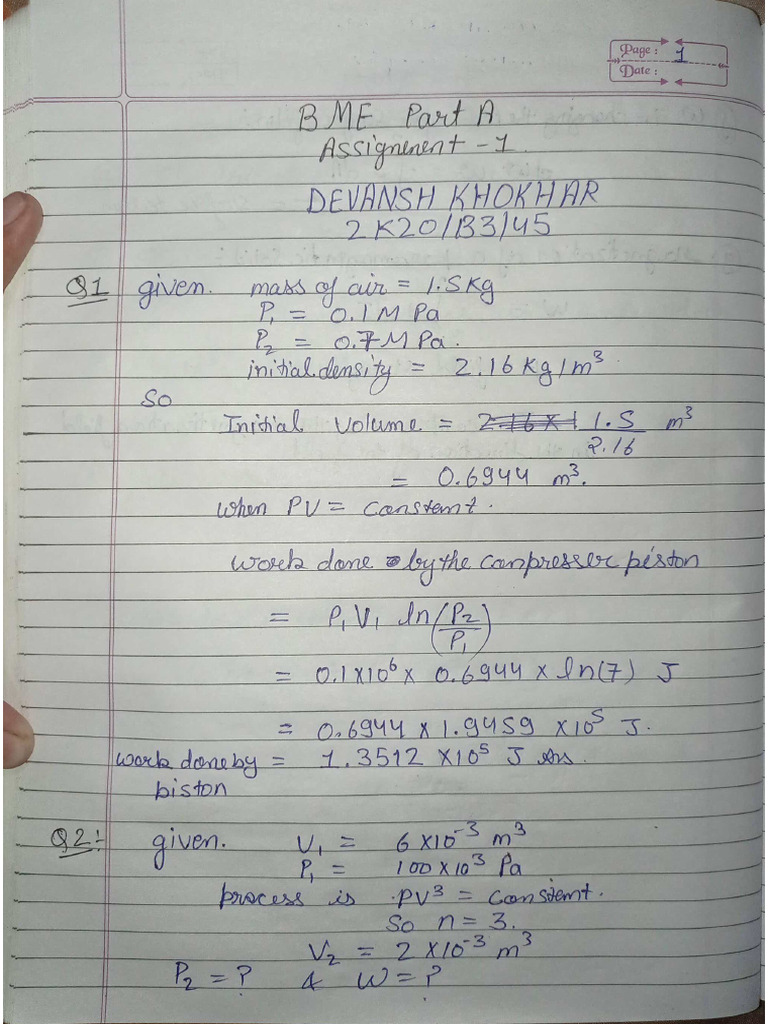 Page: 1
Date:
BME Part A
Assignenent - 1
DEVANSH KHOKHAR
2K20/B3/45
Q1 given. mass of air = 1.5Kg
P₁ = 0.1 M Pa
P₂ = 0.7 M Pa.
initial density = 2.16 Kg/m³
So
Initial Volume = 1.5/2.16 m³
= 0.6944 m³.
when PV = Constemt.
work done by the compresser piston
= P₁V₁ ln(P₂/P₁)
= 0.1×10⁶ × 0.6944 × ln(7) J
= 0.6944 × 1.9459 × 10⁵ J.
work done by = 1.3512 × 10⁵ J Ans.
piston
Q2:- given. V₁ = 6×10⁻³ m³
P₁ = 100×10³ Pa
process is PV³ = Constemt.
So n = 3.
V₂ = 2×10⁻³ m³
P₂ = ? & W = ?